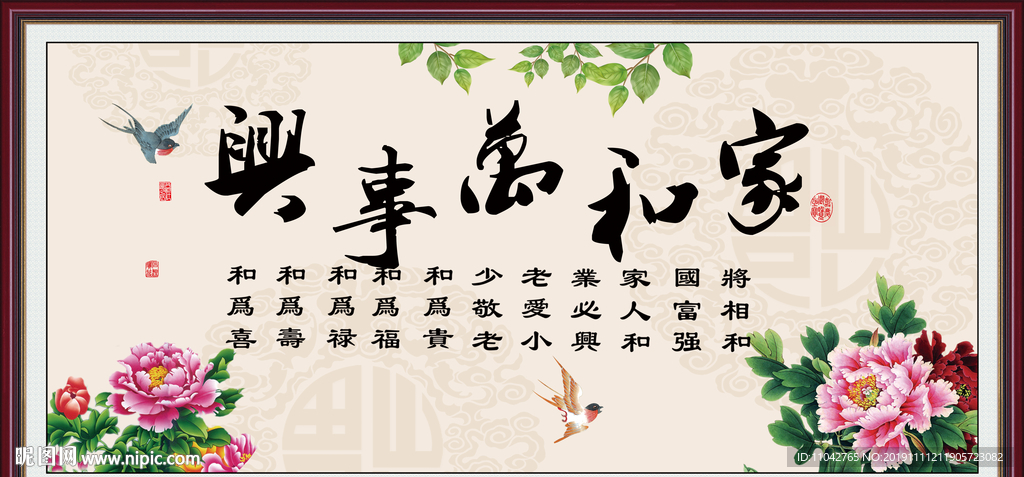 家和萬事興
將相和
國富强
家人和
業必興
老愛小
少敬老
和爲貴
和爲福
和爲禄
和爲壽
和爲喜
昵图网 www.nipic.com
ID:11042765 NO:20191111211905723082